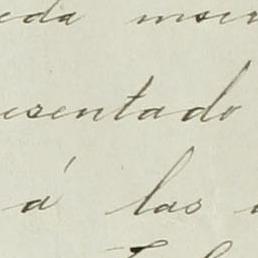 eda inser
esentado
á las